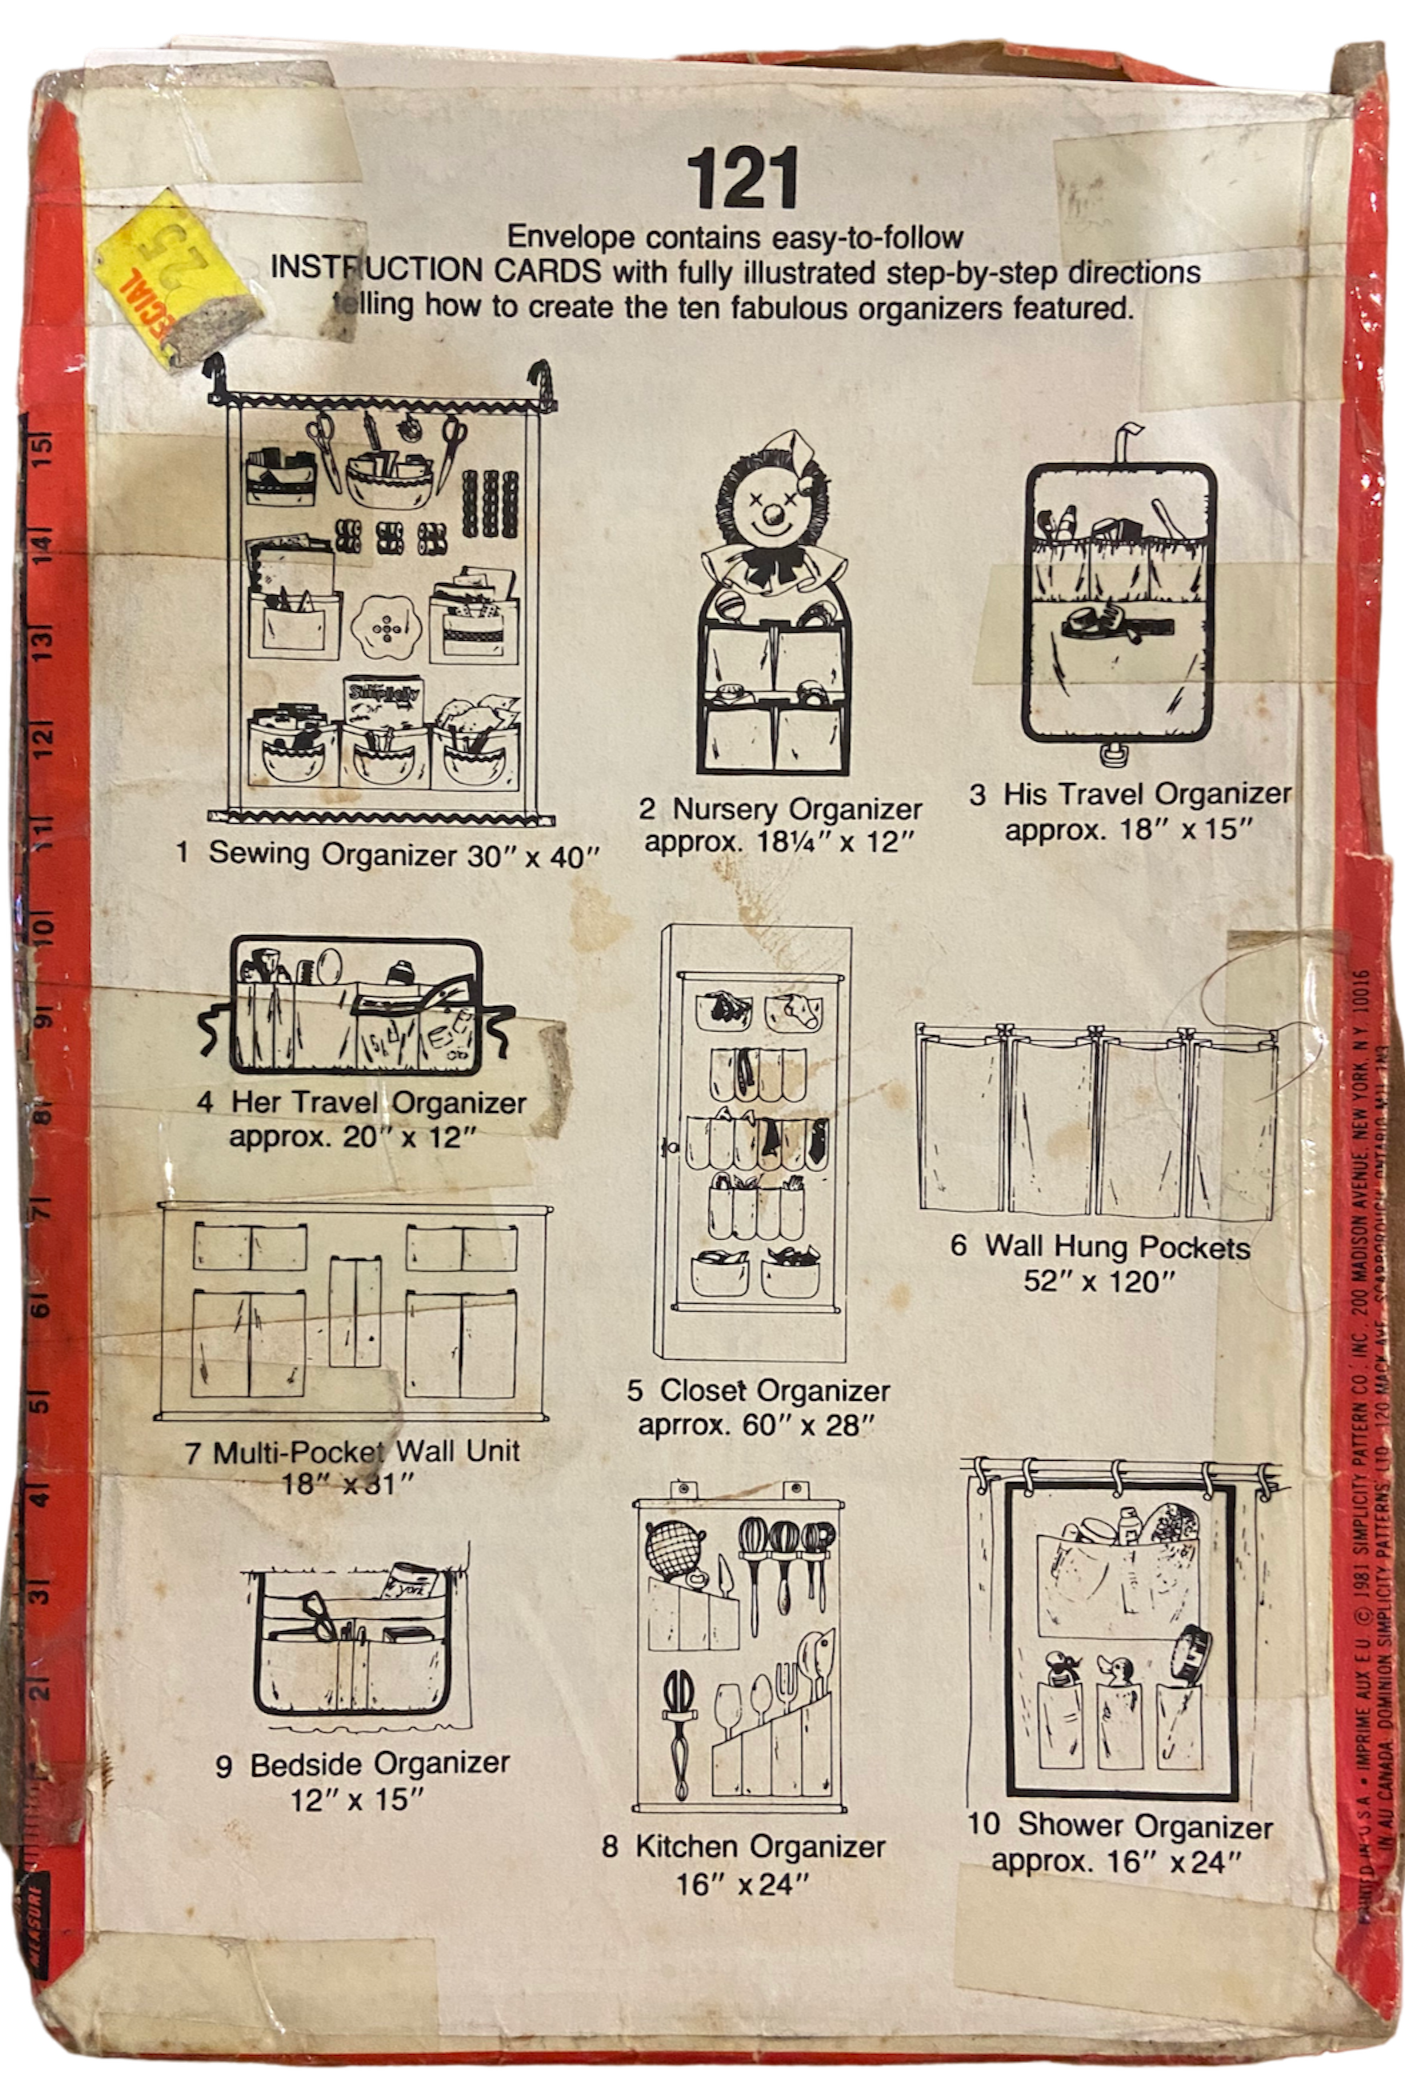 121
Envelope contains easy-to-follow
INSTRUCTION CARDS with fully illustrated step-by-step directions
telling how to create the ten fabulous organizers featured.
ECIAL
25
Simplicity
1 Sewing Organizer 30" x 40"
2 Nursery Organizer
approx. 18¼" x 12"
3 His Travel Organizer
approx. 18" x 15"
4 Her Travel Organizer
approx. 20" x 12"
5 Closet Organizer
aprrox. 60" x 28"
6 Wall Hung Pockets
52" x 120"
7 Multi-Pocket Wall Unit
18" x 31"
9 Bedside Organizer
12" x 15"
8 Kitchen Organizer
16" x 24"
10 Shower Organizer
approx. 16" x 24"
15
14
13
12
11
10
9
8
7
6
5
4
3
2
MEASURE
PRINTED IN U.S.A • IMPRIME AUX E.U. © 1981 SIMPLICITY PATTERN CO. INC. 200 MADISON AVENUE, NEW YORK, N.Y. 10016
IN AU CANADA DOMINION SIMPLICITY PATTERNS LTD 120 MACK AVE SCARBOROUGH, ONTARIO